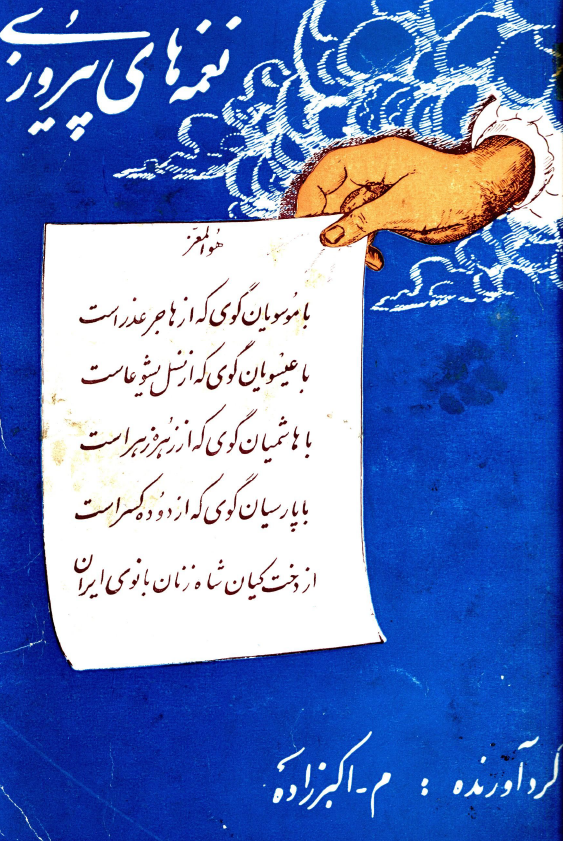 نغمه های پیروزی
هوالمعز
با موسویان گوی که از هاجر عذراست
با عیسویان گوی که از نسل یشوعاست
با هاشمیان گوی که از زهره زهراست
با پارسیان گوی که از دوده کسراست
از دخت کیان شاه زنان بانوی ایران
گردآورنده : م-اکبرزاده